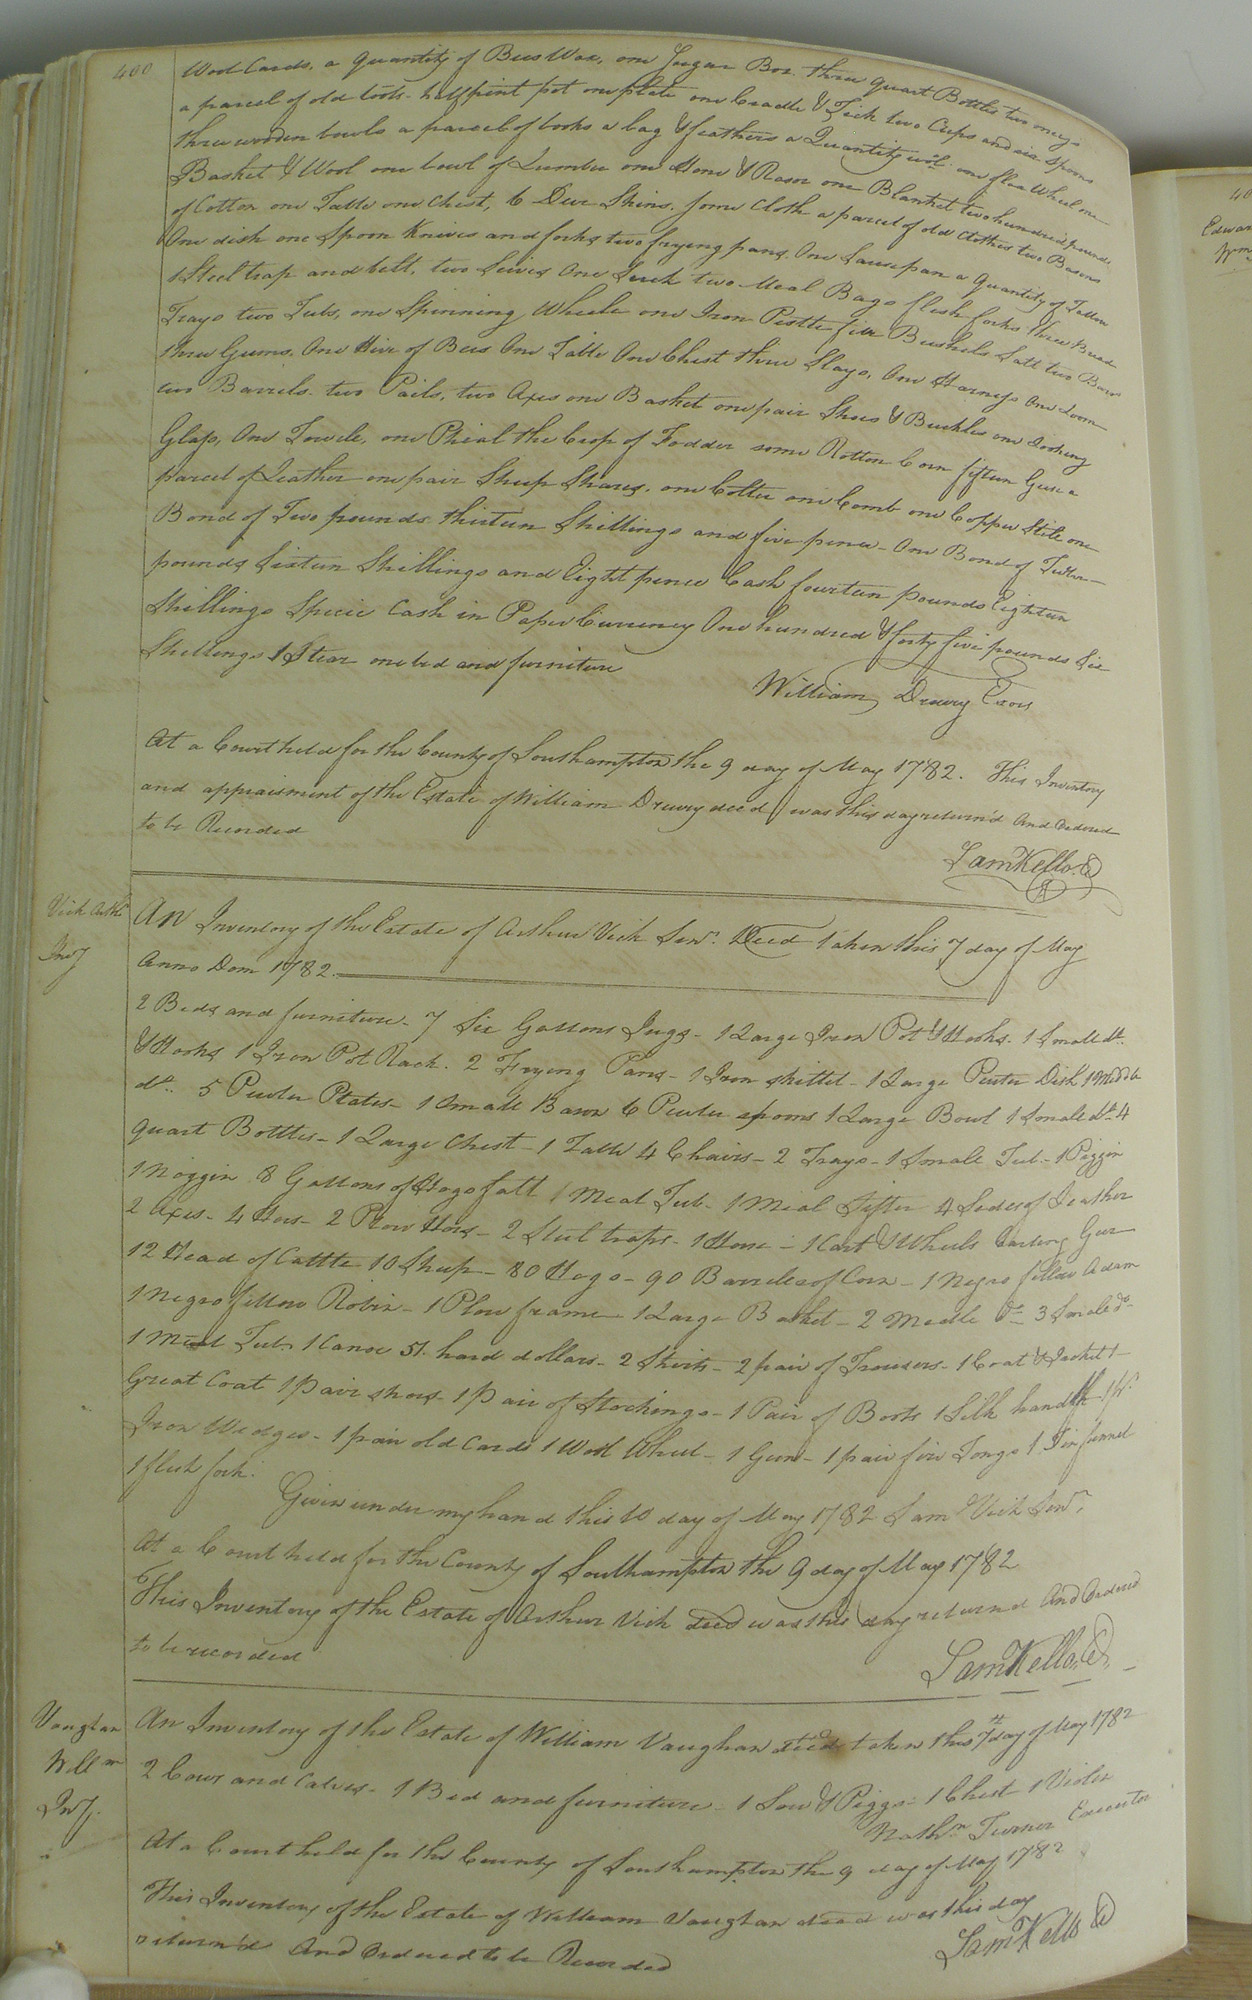 400
Wool Cards, a quantity of Bees Wax, one Sugar Box three quart Bottles two mugs
a parcel of old tools half pint pot one plate one Cradle & Tick two Cups and six Spoons
three wooden bowls a parcel of books a bag & feathers a Quantity one flax Wheel one
Basket & Wool one bowl of Lumber one Hone & Rasor one Blanket two hundred pounds
of Cotton one Table one Chest, 6 Deer Skins, some Cloth a parcel of old Clothes two Basons
One dish one Spoon Knives and forks two frying pans, One Saucepan a Quantity of Tallow
1 Steel trap and bell, two Seives One Sack two Meal Bags flesh forks three Bread
Trays two Tubs, one Spinning Wheele one Iron Pestle five Bushels Salt two
three Gums, One Hive of Bees One Table One Chest three Slays, One Harness One Loom
two Barrels two Pails, two Axes one Basket one pair Shoes & Buckles one Looking
Glass, One Towele, one Phial the Crop of Fodder some Rotten Corn fifteen Geese a
parcel of Leather one pair Sheep Shares, one Colter one Comb one Copper Still one
Bond of Two pounds thirteen Shillings and five pence - One Bond of
pounds Sixteen Shillings and Eight pence Cash fourteen pounds Eighteen
Shillings Specie Cash in Paper Currency One hundred & forty five pounds Six
Shillings 1 Stear one bed and furniture
William Drewry Exor
At a Court held for the County of Southampton the 9 day of May 1782. This Inventory
and appraisment of the Estate of William Drewry decd was this day return'd And Ordered
to be Recorded
Sam Kello C
Vick Arthr
Invy
An Inventory of the Estate of Arthur Vick Senr. Decd Taken this 7 day of May
Anno Dom 1782.
2 Beds and furniture - 7 Six Gallons Jugs - 1 Large Iron Pot & Hooks - 1 Small do.
& Hooks 1 Iron Pot Rack. 2 Frying Pans - 1 Iron skittel - 1 Large Pewter Dish 1 Middle
do. 5 Pewter Plates - 1 Small Bason 6 Pewter spoons 1 Large Bowl 1 Small do 4
quart Bottles - 1 Large Chest - 1 Table 4 Chairs - 2 Trays - 1 Small Tub - 1 Piggin
1 Noggin 8 Gallons of Hogs fatt 1 Meat Tub - 1 Meal Sifter 4 Sides of Leather
2 Axes - 4 Hoes - 2 Plow Hoes - 2 Steel traps - 1 Horse - 1 Cart & Wheels
12 Head of Cattle 10 Sheep - 80 Hogs - 90 Barreles of Corn - 1 Negro fellow Adam
1 Negro fellow Robin - 1 Plow frame 1 Large Basket - 2 Medle Do 3 Small do -
1 Meal Tub 1 Canoe 51 hard dollars - 2 Shirts - 2 pair of Trousers - 1 Coat & Jacket 1
Great Coat 1 Pair shoes - 1 Pair of Stockings - 1 Pair of Boots 1 Silk handkf - 1 pr.
Iron Wedges - 1 pair old Cards 1 Wool Wheel - 1 Gun - 1 pair fire Tongs 1 Tin funnel
1 flesh fork.
Given under my hand this 10 day of May 1782 Saml Vick Senr.
At a Court held for the County of Southampton the 9 day of May 1782
This Inventory of the Estate of Arthur Vick decd was this day returned And Ordered
to be recorded
Sam Kello, C
Vaughan
Willm
Invy.
An Inventory of the Estate of William Vaughan decd taken this 7th day of May 1782
2 Cows and Calves - 1 Bed and furniture - 1 Sow & Piggs - 1 Chest 1 Violin
Nathn Turner Executor
At a Court held for the County of Southampton the 9 day of May 1782
This Inventory of the Estate of William Vaughan decd was this day
return'd And Ordered to be Recorded
Sam Kello C